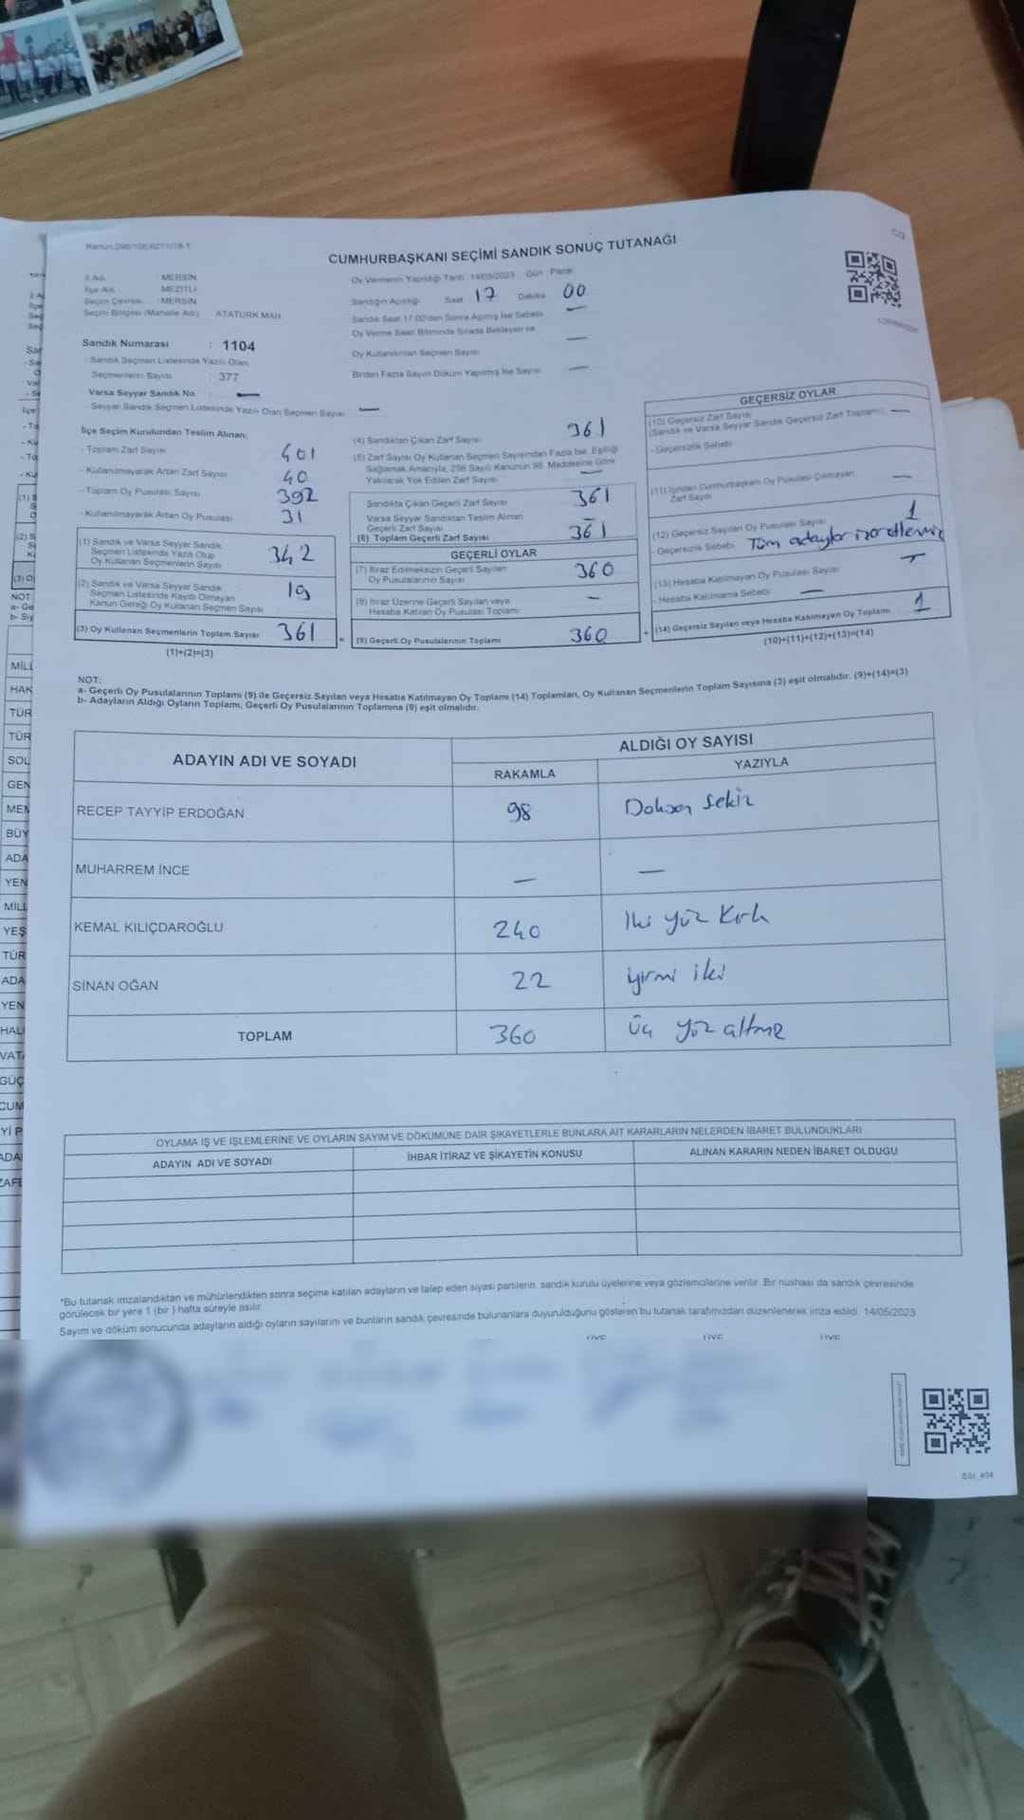 CUMHURBAŞKANI SEÇİMİ SANDIK SONUÇ TUTANAĞI
İl Adı : MERSİN
İlçe Adı : MEZİTLİ
Seçim Çevresi : MERSİN
Seçim Bölgesi (Mahalle Adı) : ATATÜRK MAH
Sandık Numarası : 1104
Sandık Seçmen Listesinde Yazılı Olan
Seçmenlerin Sayısı 377
Varsa Seyyar Sandık No : —
Seyyar Sandık Seçmen Listesinde Yazılı Olan Seçmen Sayısı —
Oy Vermenin Yapıldığı Tarih 14/05/2023 Gün Pazar
Sandığın Açılışı Saat 17 Dakika 00
Sandık Saat 17.00'den Sonra Açılmış İse Sebebi —
Oy Verme Saati Bitiminde Sırada Bekleyen ve
Oy Kullandırılan Seçmen Sayısı —
Birden Fazla Sayım Döküm Yapılmış İse Sayısı —
İlçe Seçim Kurulundan Teslim Alınan;
- Toplam Zarf Sayısı 401
- Kullanılmayarak Artan Zarf Sayısı 40
- Toplam Oy Pusulası Sayısı 392
- Kullanılmayarak Artan Oy Pusulası 31
(1) Sandık ve Varsa Seyyar Sandık
Seçmen Listesinde Yazılı Olup
Oy Kullanan Seçmenlerin Sayısı 342
(2) Sandık ve Varsa Seyyar Sandık
Seçmen Listesinde Kaydı Olmayan
Kanun Gereği Oy Kullanan Seçmen Sayısı 19
(3) Oy Kullanan Seçmenlerin Toplam Sayısı 361
(1)+(2)=(3)
(4) Sandıktan Çıkan Zarf Sayısı 361
(5) Zarf Sayısı Oy Kullanan Seçmen Sayısından Fazla İse, Eşitliği
Sağlamak Amacıyla, 298 Sayılı Kanunun 98. Maddesine Göre
Yakılarak Yok Edilen Zarf Sayısı —
Sandıkta Çıkan Geçerli Zarf Sayısı 361
Varsa Seyyar Sandıktan Teslim Alınan
Geçerli Zarf Sayısı —
(6) Toplam Geçerli Zarf Sayısı 361
GEÇERLİ OYLAR
(7) İtiraz Edilmeksizin Geçerli Sayılan
Oy Pusulalarının Sayısı 360
(8) İtiraz Üzerine Geçerli Sayılan veya
Hesaba Katılan Oy Pusulası Toplamı —
(9) Geçerli Oy Pusulalarının Toplamı 360
GEÇERSİZ OYLAR
(10) Geçersiz Zarf Sayısı
(Sandık ve Varsa Seyyar Sandık Geçersiz Zarf Toplamı) —
- Geçersizlik Sebebi
(11) İçinden Cumhurbaşkanı Oy Pusulası Çıkmayan
Zarf Sayısı —
(12) Geçersiz Sayılan Oy Pusulası Sayısı 1
Geçersizlik Sebebi Tüm adaylar
(13) Hesaba Katılmayan Oy Pusulası Sayısı
- Hesaba Katılmama Sebebi —
(14) Geçersiz Sayılan veya Hesaba Katılmayan Oy Toplamı 1
(10)+(11)+(12)+(13)=(14)
NOT:
a- Geçerli Oy Pusulalarının Toplamı (9) ile Geçersiz Sayılan veya Hesaba Katılmayan Oy Toplamı (14) Toplamları, Oy Kullanan Seçmenlerin Toplam Sayısına (3) eşit olmalıdır. (9)+(14)=(3)
b- Adayların Aldığı Oyların Toplamı, Geçerli Oy Pusulalarının Toplamına (9) eşit olmalıdır.
ADAYIN ADI VE SOYADI
ALDIĞI OY SAYISI
RAKAMLA YAZIYLA
RECEP TAYYİP ERDOĞAN 98 Doksan sekiz
MUHARREM İNCE — —
KEMAL KILIÇDAROĞLU 240 İki yüz Kırk
SİNAN OĞAN 22 yirmi iki
TOPLAM 360 üç yüz altmış
OYLAMA İŞ VE İŞLEMLERİNE VE OYLARIN SAYIM VE DÖKÜMÜNE DAİR ŞİKAYETLERLE BUNLARA AİT KARARLARIN NELERDEN İBARET BULUNDUKLARI
ADAYIN ADI VE SOYADI İHBAR İTİRAZ VE ŞİKAYETİN KONUSU ALINAN KARARIN NEDEN İBARET OLDUĞU
*Bu tutanak imzalandıktan ve mühürlendikten sonra seçime katılan adayların ve talep eden siyasi partilerin, sandık kurulu üyelerine veya gözlemcilerine verilir. Bir nüshası da sandık çevresinde
görülecek bir yere 1 (bir) hafta süreyle asılır.
Sayım ve döküm sonucunda adayların aldığı oyların sayılarını ve bunların sandık çevresinde bulunanlara duyurulduğunu gösteren bu tutanak tarafımızdan düzenlenerek imza edildi. 14/05/2023
MİLL
HAK
TÜR
TÜR
SOL
GEN
MEM
BÜY
ADA
YEN
MİLL
YEŞ
TÜR
ADA
YEN
HAL
VATA
GÜÇ
CUM
Yİ P
ADA
ZAFE